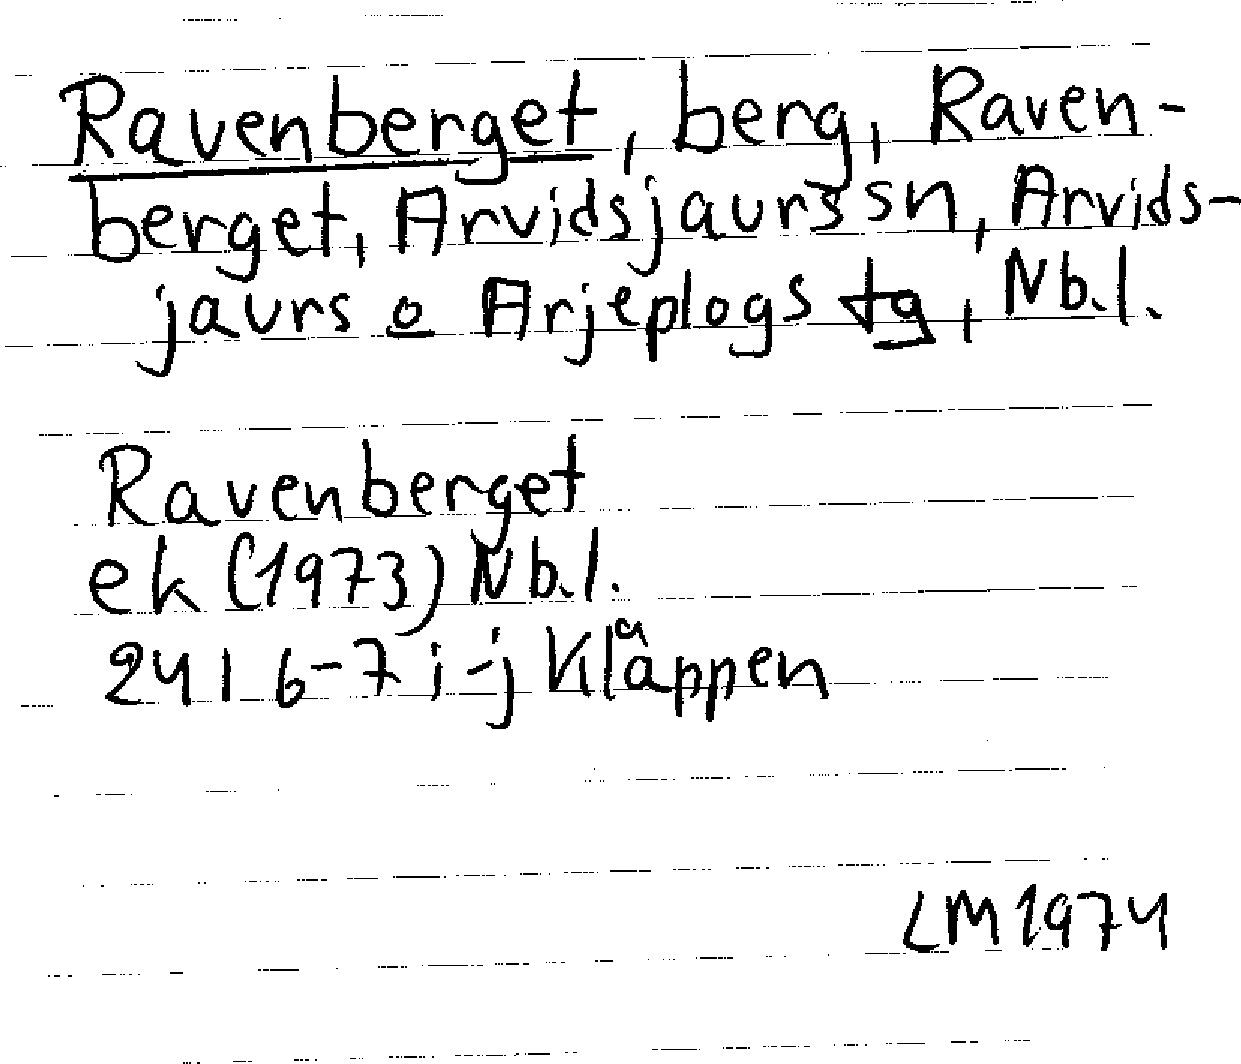 Ravenberget, berg, Raven-
berget, Arvidsjaurs sn, Arvids-
jaurs o Arjeplogs tg, Nb.l.
Ravenberget
ek (1973) Nb.l.
24 I 6-7 i-j Kläppen
LM 1974